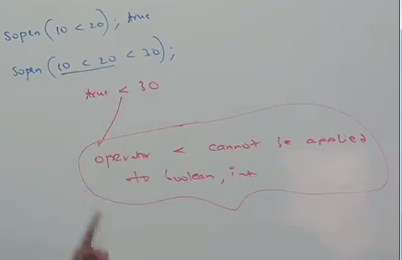 Sopen(10 < 20); true
Sopen(10 < 20 < 30);
true < 30
operator < cannot be applied
to boolean, int